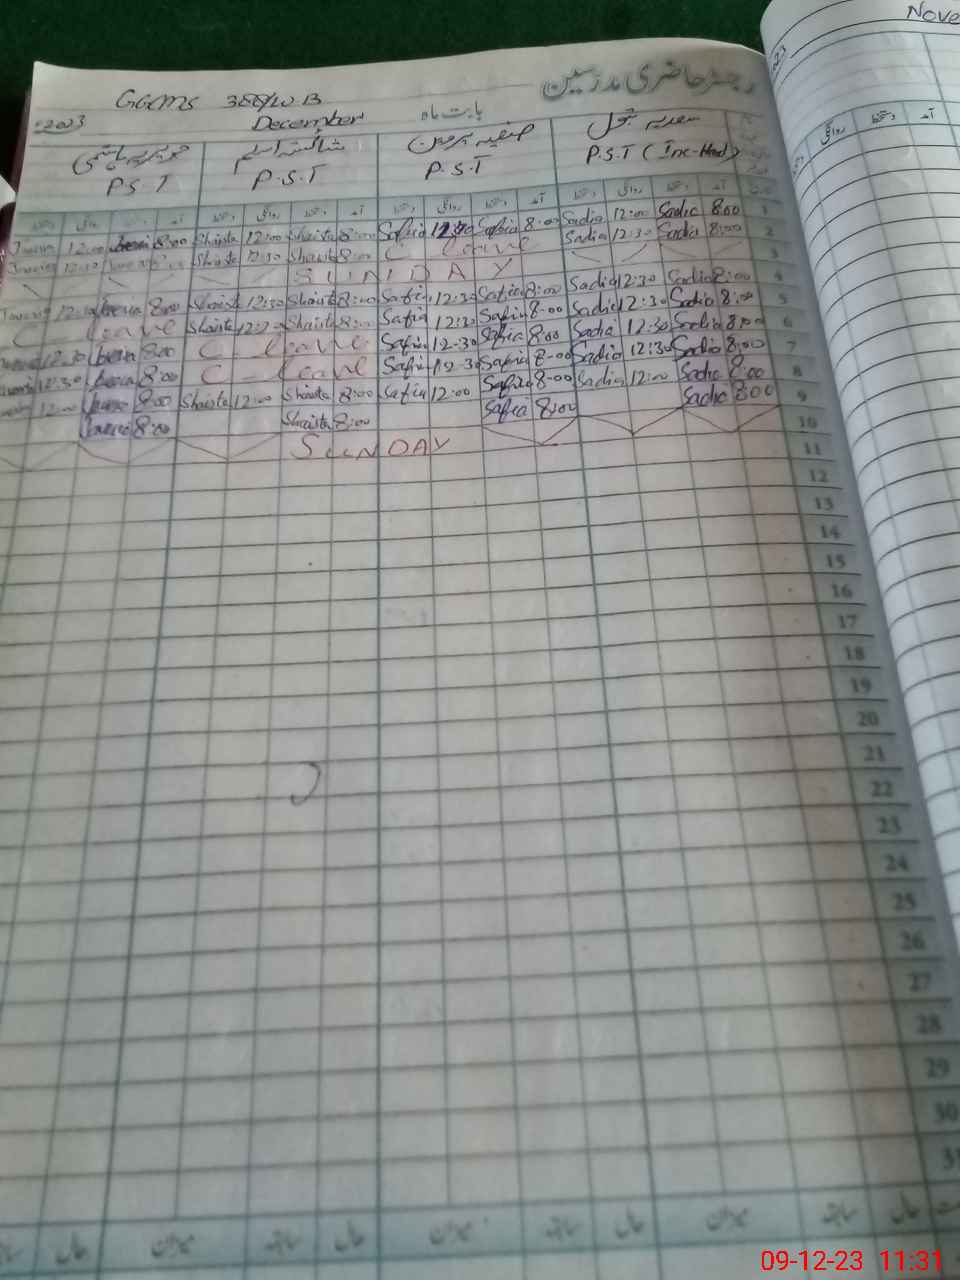 Nove
رجسٹر حاضری مدرسین
GGCMS 388/10 B
2023 December بابت ماہ
سعدیہ بتول صفیہ پروین شائستہ اسلم جویریہ ہاشمی
P.S.T (Inc-Head) P.S.T P.S.T P.S.T
آمد دستخط روانگی دستخط آمد دستخط روانگی دستخط آمد دستخط روانگی دستخط آمد دستخط روانگی دستخط
آمد دستخط روانگی
12:00 8:00 Shaista 12:00 Shaista 8:00 Safia Safia 8:00 Sadia 12:00 Sadia 8:00 1
12:30 Shaista 12:30 Shaista 8:00 C leave Sadia 12:30 Sadia 8:00 2
SUNDAY 3
8:00 Shaista 12:30 Shaista 8:00 Safia 12:30 Safia 8:00 Sadia 12:30 Sadia 8:00 4
C leave Shaista Shaista 8:00 Safia 12:30 Safia 8:00 Sadia 12:30 Sadia 8:00 5
12:30 8:00 C leave Safia 12:30 Safia 8:00 Sadia 12:30 Sadia 8:00 6
12:30 8:00 C leave Safia 12:30 Safia 8:00 Sadia 12:30 Sadia 8:00 7
12:00 8:00 Shaista 12:00 Shaista 8:00 Safia 12:00 Safia 8:00 Sadia 12:00 Sadia 8:00 8
8:00 Shaista 8:00 Safia 8:00 Sadia 8:00 9
SUNDAY 10
11
12
13
14
15
16
17
18
19
20
21
22
23
24
25
26
27
28
29
30
31
حال سابقہ میزان حال سابقہ میزان حال
09-12-23 11:31